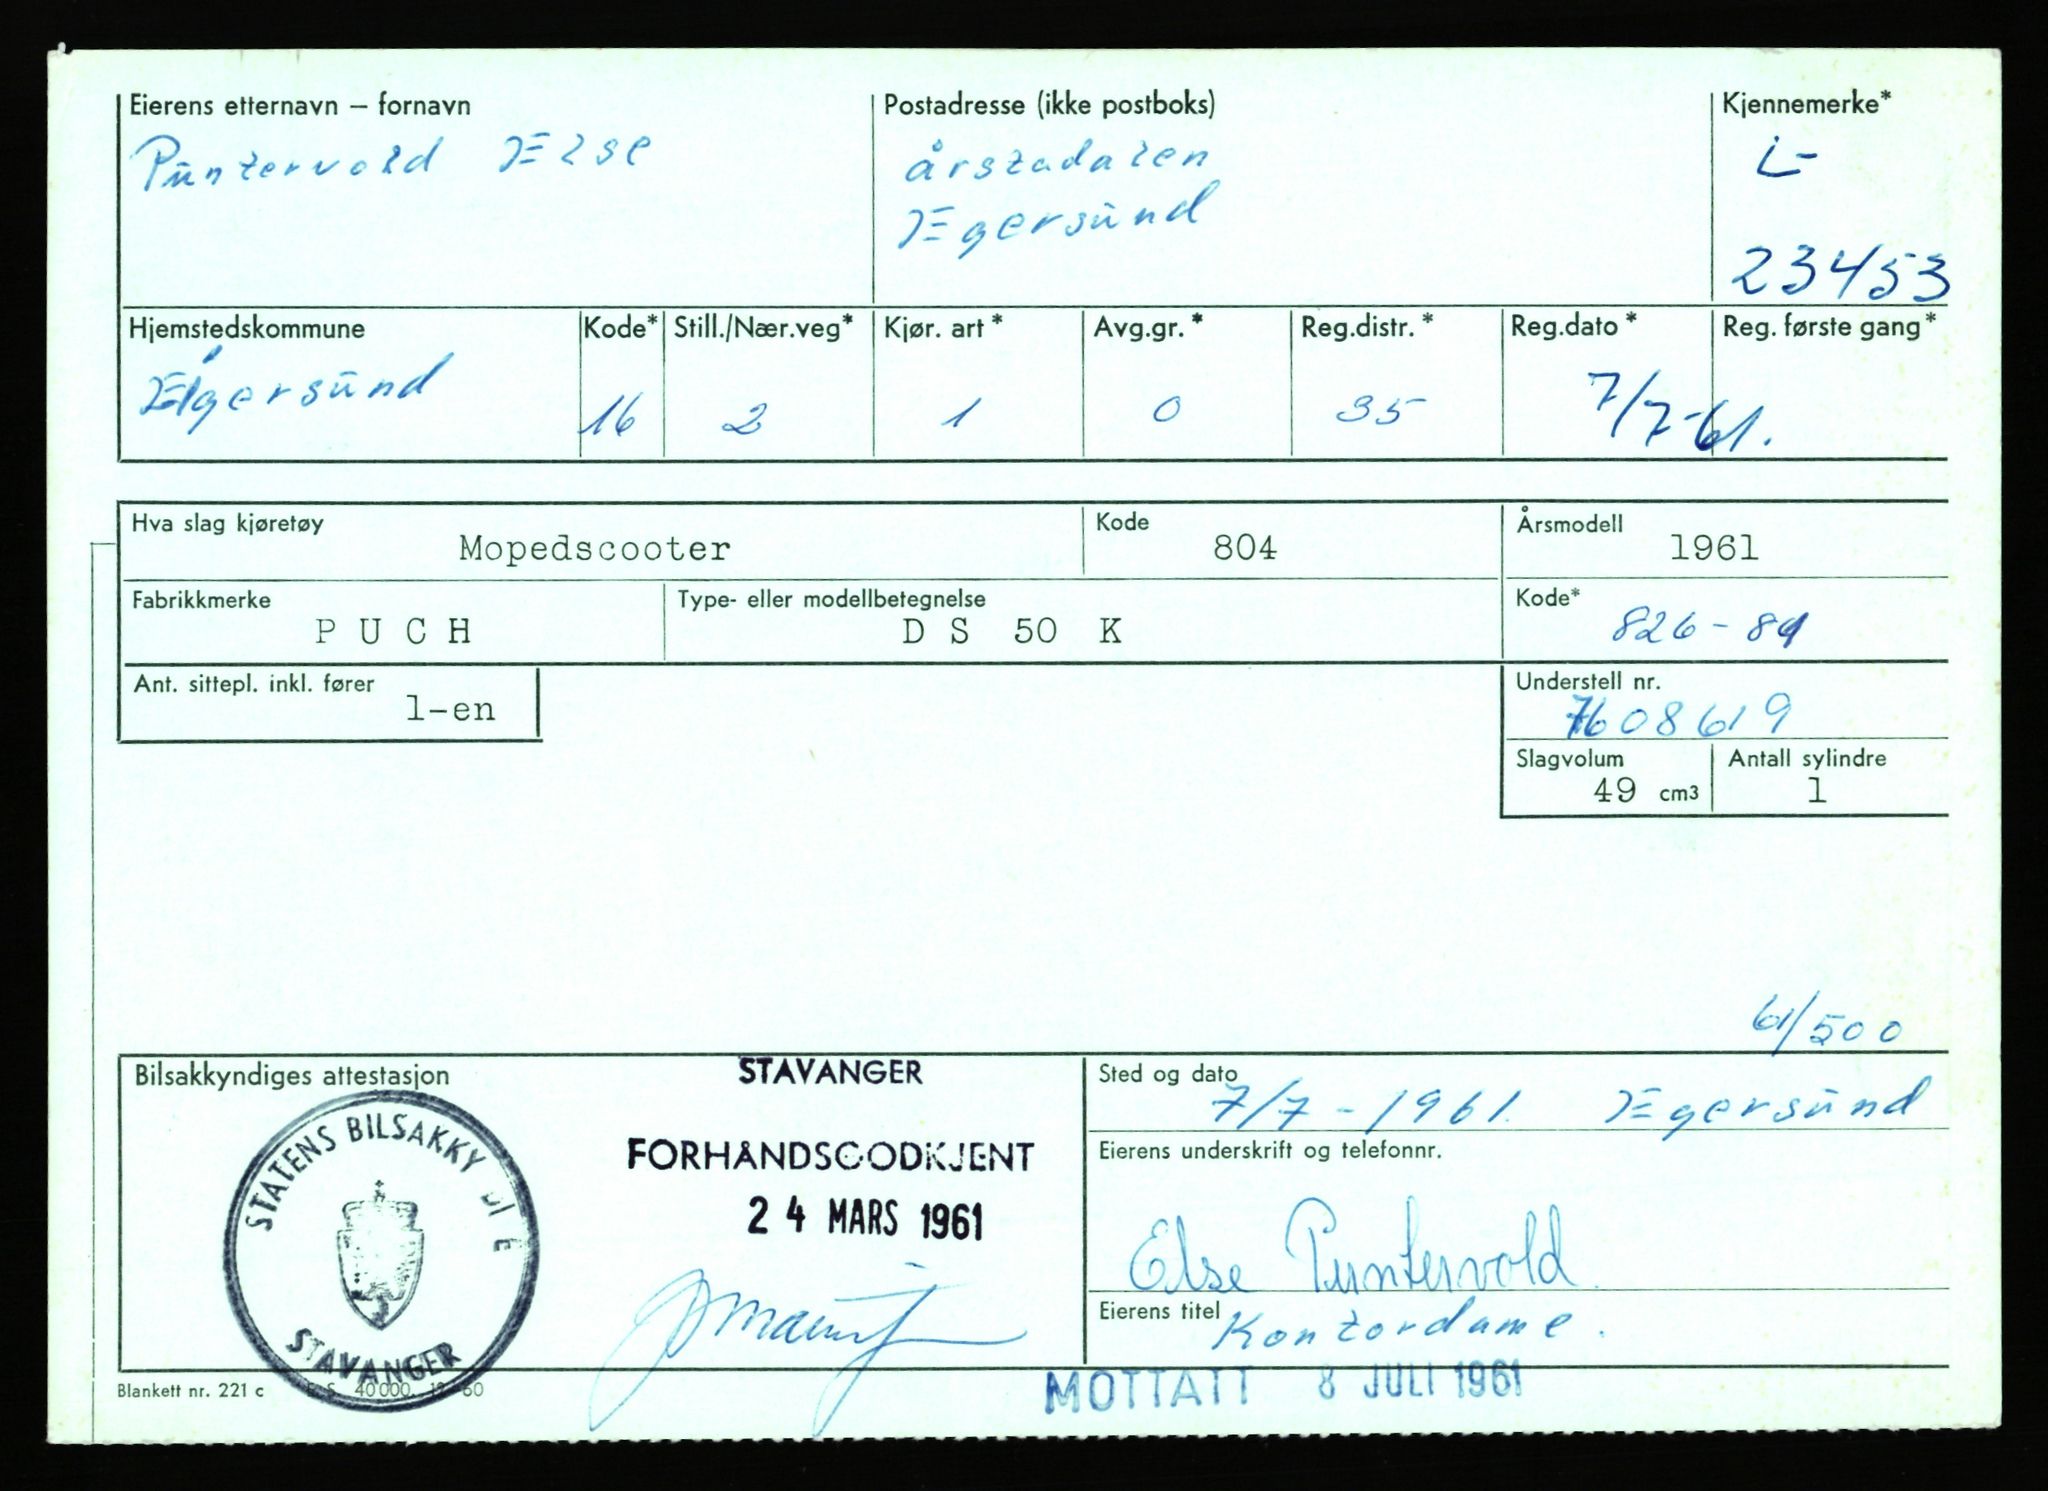 Eierens etternavn – fornavn
Puntervold Else
Postadresse (ikke postboks)
årstadalen
Egersund
Kjennemerke*
L-
23453
Hjemstedskommune
Egersund
Kode*
16
Still./Nær.veg*
2
Kjør. art*
1
Avg.gr.*
0
Reg.distr.*
35
Reg.dato*
7/7-61.
Reg. første gang*
Hva slag kjøretøy
Mopedscooter
Kode
804
Årsmodell
1961
Fabrikkmerke
PUCH
Type- eller modellbetegnelse
DS 50 K
Kode*
826-89
Ant. sittepl. inkl. fører
1-en
Understell nr.
7608619
Slagvolum
49 cm3
Antall sylindre
1
61/500
Bilsakkyndiges attestasjon
STATENS BILSAKKY DI E
STAVANGER
STAVANGER
FORHÅNDSGODKJENT
24 MARS 1961
Sted og dato
7/7-1961. Egersund
Eierens underskrift og telefonnr.
Else Puntervold
Eierens titel
Kontordame.
Blankett nr. 221 c E. S. 40 000. 12-60
MOTTATT 8 JULI 1961